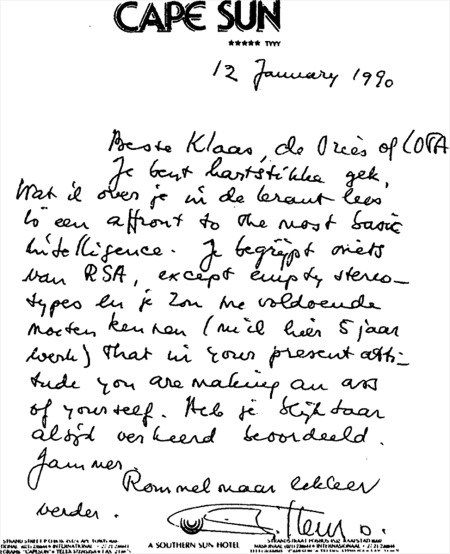 CAPE SUN
★★★★★ TYYY
12 January 1990
Beste Klaas, de Vries of COVA
Je bent hartstikke gek,
Wat ik over je in de krant lees
is een affront to the most basic
intelligence. Je begrijpt niets
van RSA, except empty stereo-
types en je zou me voldoende
moeten kennen (nu ik hier 5 jaar
werk) that in your present atti-
tude you are making an ass
of yourself. Heb je blijkbaar
altijd verkeerd beoordeeld.
Jammer.
Rommel maar lekker
verder.
A SOUTHERN SUN HOTEL